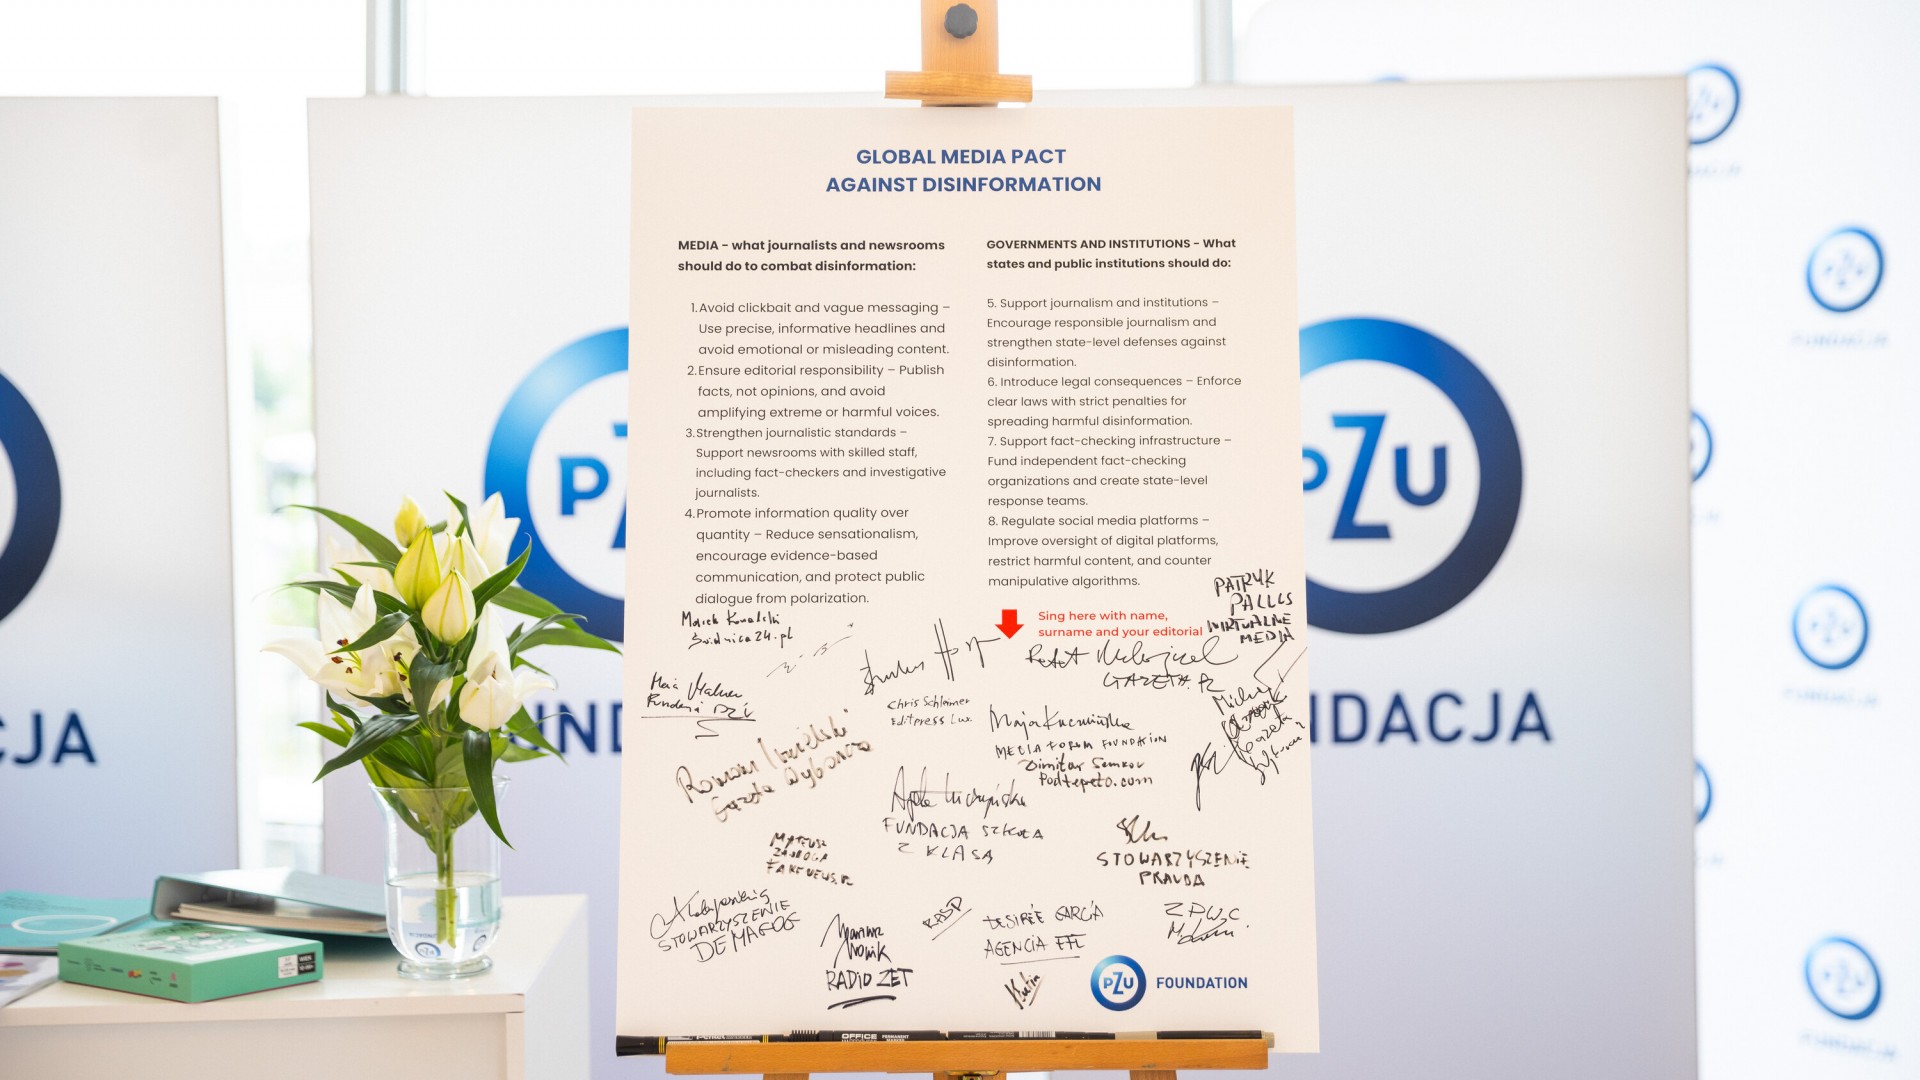 GLOBAL MEDIA PACT
AGAINST DISINFORMATION
MEDIA - what journalists and newsrooms
should do to combat disinformation:
1. Avoid clickbait and vague messaging –
Use precise, informative headlines and
avoid emotional or misleading content.
2. Ensure editorial responsibility – Publish
facts, not opinions, and avoid
amplifying extreme or harmful voices.
3. Strengthen journalistic standards –
Support newsrooms with skilled staff,
including fact-checkers and investigative
journalists.
4. Promote information quality over
quantity – Reduce sensationalism,
encourage evidence-based
communication, and protect public
dialogue from polarization.
GOVERNMENTS AND INSTITUTIONS - What
states and public institutions should do:
5. Support journalism and institutions –
Encourage responsible journalism and
strengthen state-level defenses against
disinformation.
6. Introduce legal consequences – Enforce
clear laws with strict penalties for
spreading harmful disinformation.
7. Support fact-checking infrastructure –
Fund independent fact-checking
organizations and create state-level
response teams.
8. Regulate social media platforms –
Improve oversight of digital platforms,
restrict harmful content, and counter
manipulative algorithms.
Sing here with name,
surname and your editorial
PATRYK
PALLUS
WIRTUALNE
MEDIA
Marek Kowalski
Świdnica24.pl
GAZETA.PL
Chris Schleimer
Editpress Lux
Maja Kuczmińska
MEDIA FORUM FOUNDATION
Dimitar
Podtepeto.com
Roman
Gazeta Wyborcza
FUNDACJA SZKOŁA
Z KLASĄ
MATEUSZ
FAKENEWS.PL
STOWARZYSZENIE
PRAVDA
STOWARZYSZENIE
DEMAGOG
RADIO ZET
DESIRÉE GARCÍA
AGENCIA EFE
PZU
FOUNDATION
OFFICE PERMANENT
MARKER
PZU
FUNDACJA